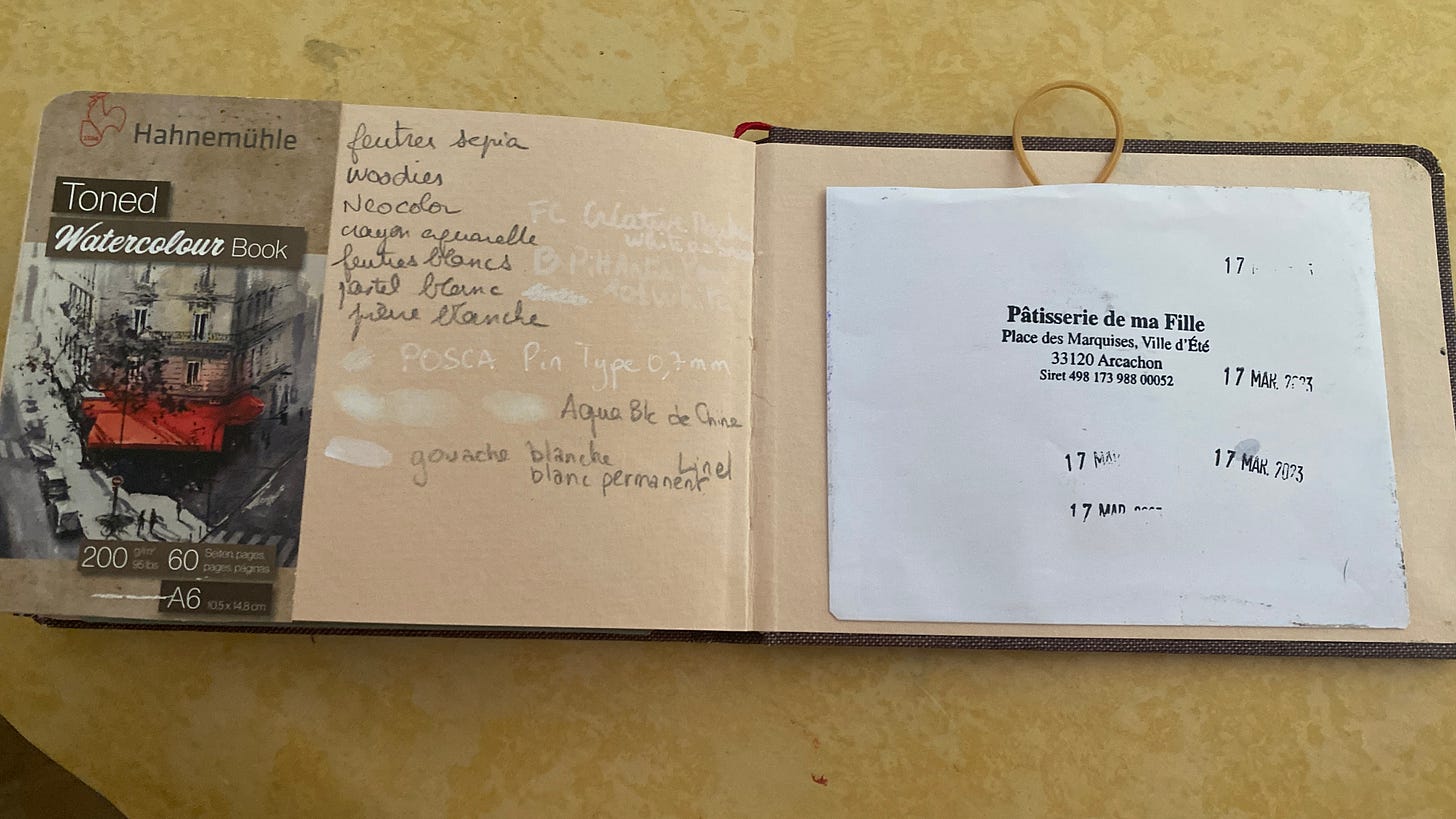 Hahnemühle
Toned
Watercolour Book
200 g/m² 60 Seiten, pages,
95 lbs pages, páginas
A6 10,5 x 14,8 cm
feutres sepia
woodies
Neocolor
crayon aquarelle
feutres blancs
pastel blanc
pierre blanche
FC Creative
white
B Pitt
POSCA Pin Type 0,7mm
Aqua Blc de Chine
gouache blanche Linel
blanc permanent
17
Pâtisserie de ma Fille
Place des Marquises, Ville d'Été
33120 Arcachon
Siret 498 173 988 00052
17 MAR. 2023
17 MAR. 2023
17
17